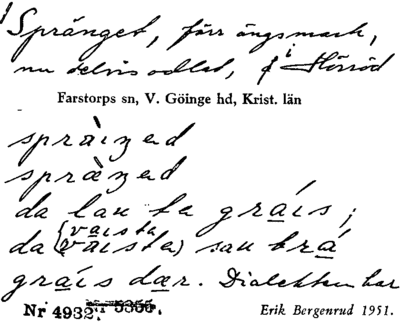 Spränget, förr ängsmark,
nu delvis odlad, i Hörröd
Farstorps sn, V. Göinge hd, Krist. län
spräiŋəd
spräŋəd
da lau ta gra̲is;
(va̲ista
da va̲ista) sau bra̲
gra̲is dær. Dialekten har
Nr 4932.
Erik Bergenrud 1951.